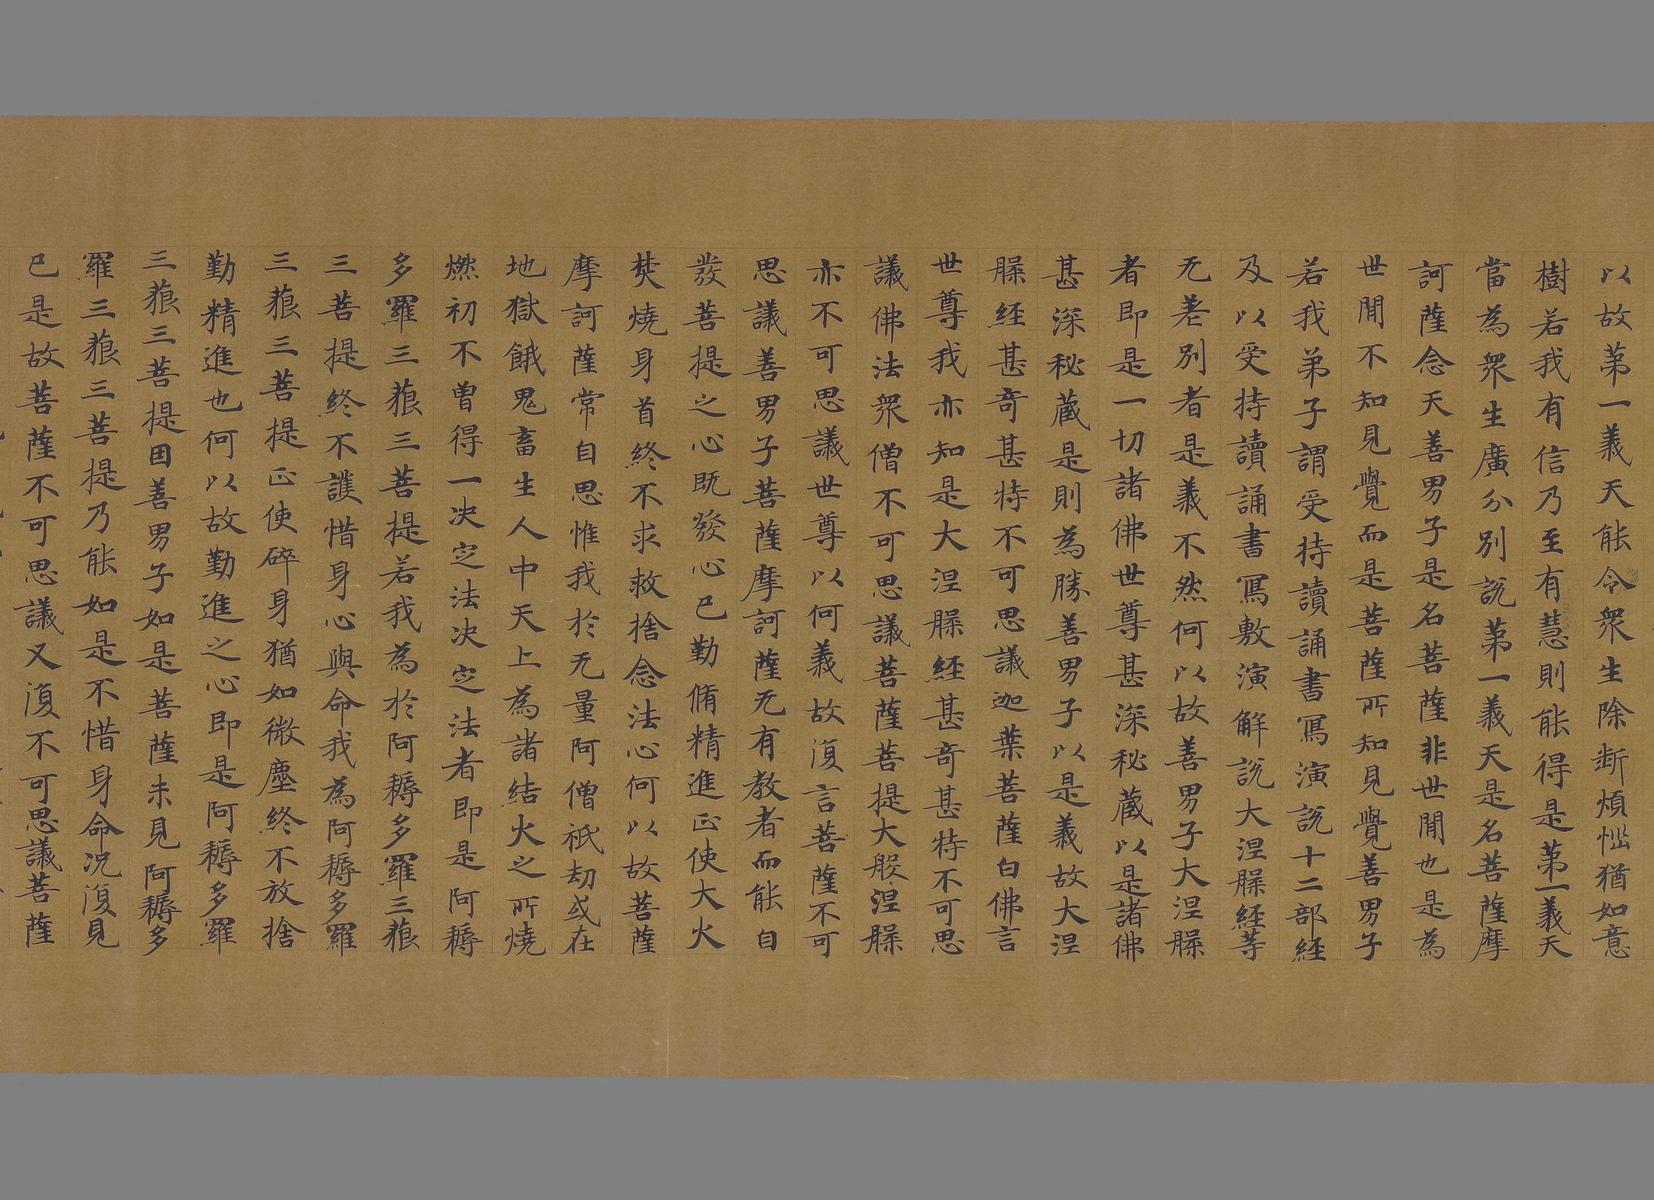 以故第一義天能令衆生除斷煩惱猶如意
樹若我有信乃至有慧則能得是第一義天
當為衆生廣分別說第一義天是名菩薩摩
訶薩念天善男子是名菩薩非世間也是為
世間不知見覺而是菩薩所知見覺善男子
若我弟子謂受持讀誦書寫演說十二部經
及以受持讀誦書寫敷演解說大涅槃經等
无差別者是義不然何以故善男子大涅槃
者即是一切諸佛世尊甚深秘藏以是諸佛
甚深秘藏是則為勝善男子以是義故大涅
槃經甚奇甚特不可思議迦葉菩薩白佛言
世尊我亦知是大涅槃經甚奇甚特不可思
議佛法衆僧不可思議菩薩菩提大般涅槃
亦不可思議世尊以何義故復言菩薩不可
思議善男子菩薩摩訶薩无有教者而能自
發菩提之心既發心已勤脩精進正使大火
焚燒身首終不求救捨念法心何以故菩薩
摩訶薩常自思惟我於无量阿僧祇劫或在
地獄餓鬼畜生人中天上為諸結火之所燒
燃初不曽得一决定法决定法者即是阿耨
多羅三藐三菩提若我為於阿耨多羅三藐
三菩提終不護惜身心與命我為阿耨多羅
三藐三菩提正使碎身猶如微塵終不放捨
勤精進也何以故勤進之心即是阿耨多羅
三藐三菩提因善男子如是菩薩未見阿耨多
羅三藐三菩提乃能如是不惜身命况復見
已是故菩薩不可思議又復不可思議菩薩